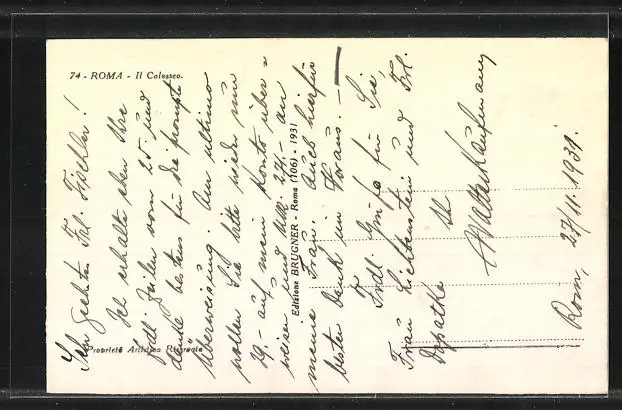 74 - ROMA - Il Colosseo.
Sehr geehrtes Frl. Fischler!
Ich erhalte eben Ihre
frdl. Zeilen vom 25. und
danke bestens für die prompte
Überweisung. Am ultimo
wollen Sie bitte wieder nur
19.- auf mein Konto über=
weisen und Mk. 24.- an
meine Frau. Auch hierfür
besten Dank im Voraus. -
Frdl. Grüße für Sie,
Frau Lichtenstein und Frl.
Ihr
Walter Kaufmann
Rom, 27/11. 1931.
Edizione BRUGNER - Roma (106) - 1931
Proprietà Artistica Riservata